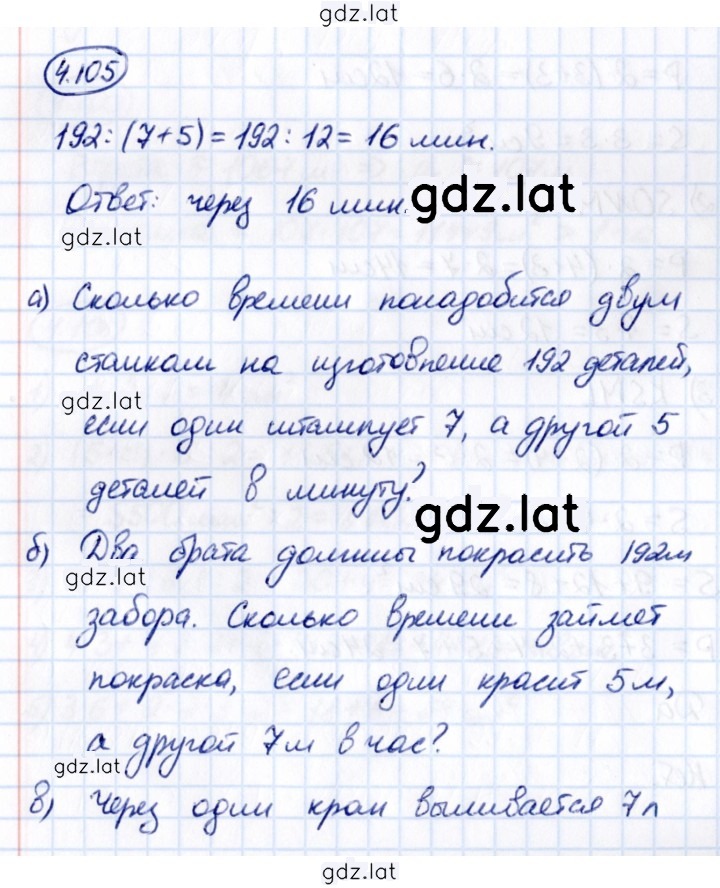 gdz.lat
4.105
192 : (7+5) = 192 : 12 = 16 мин.
Ответ: через 16 мин. gdz.lat
gdz.lat
а) Сколько времени понадобится двум
станкам на изготовление 192 деталей,
gdz.lat
если один штампует 7, а другой 5
деталей в минуту?
gdz.lat
б) Два брата должны покрасить 192м
gdz.lat
забора. Сколько времени займет
покраска, если один красит 5м,
а другой 7м в час?
gdz.lat
в) Через один кран выливается 7л
gdz.lat